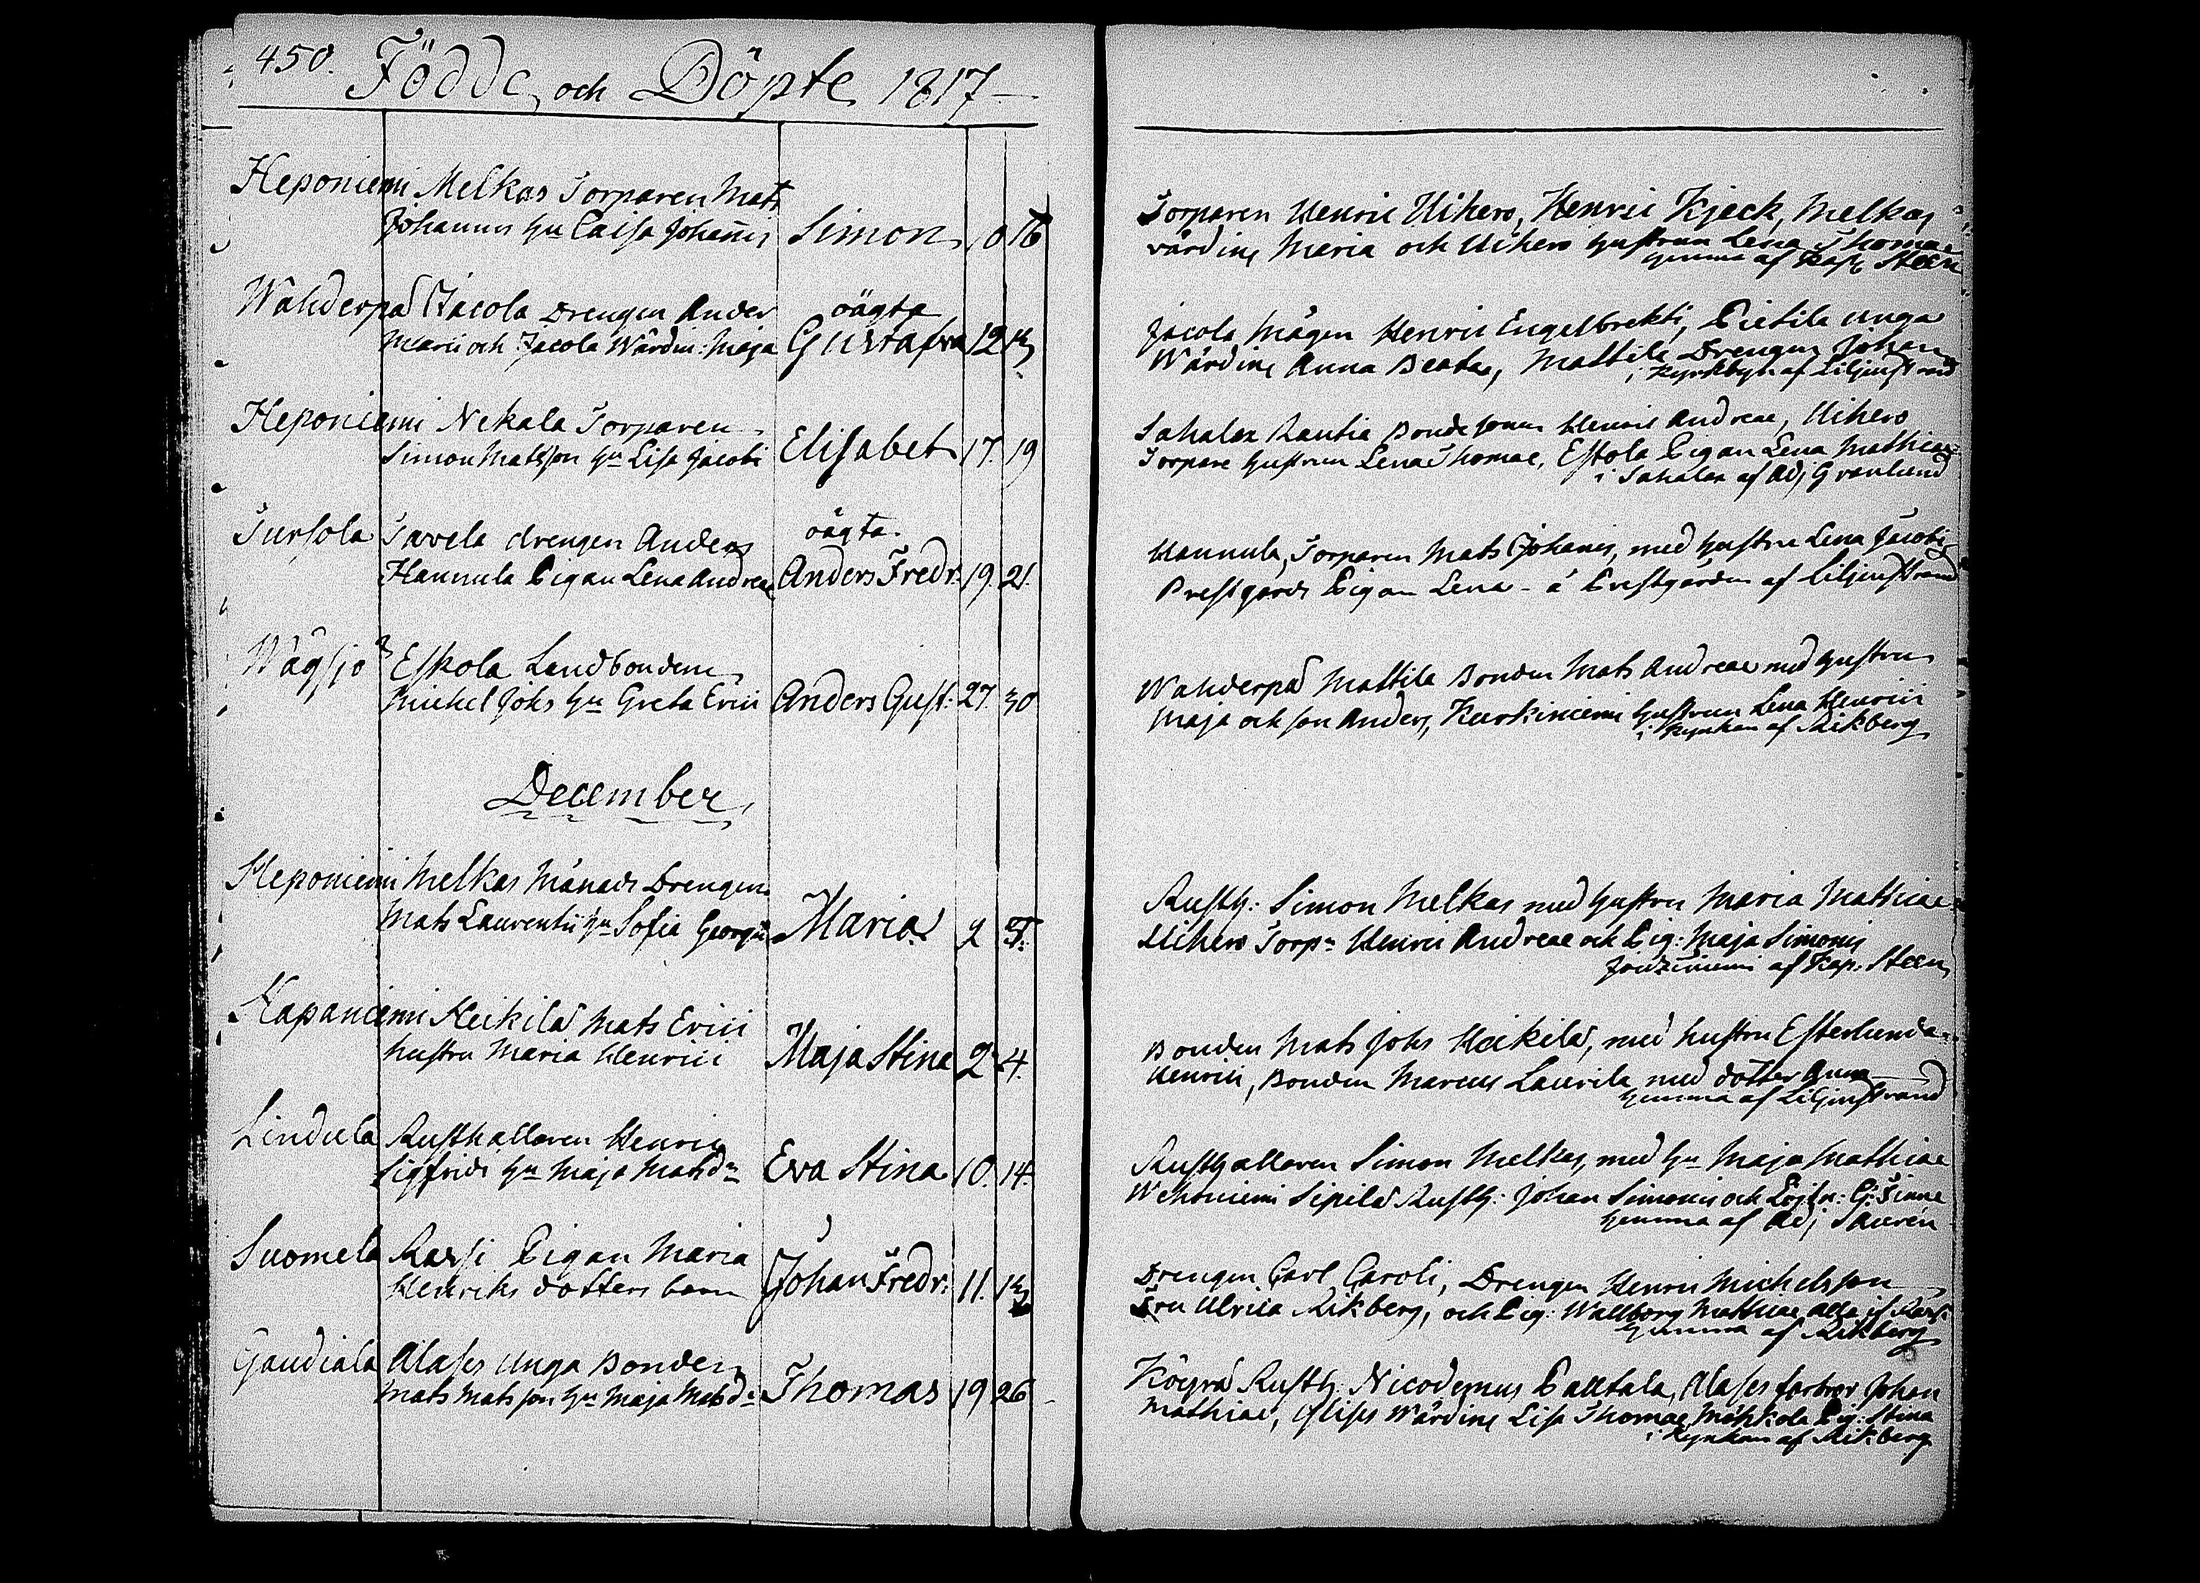 450. Födde och Döpte 1817
Heponiemi Melkas Torparen Mats
Johannis hu Caisa Johannis Simon 10 16
Torparen Henric Uihero, Henric Kjeck, Melkas
värdin Maria och Uihero hustrun Lena Thomae
hemma af Kap Steen
Wahderpä Jacola Drengen Ander oägta
Marii och Jacola Wärdin: Maja Gustafva 12 13
Jacola Mågen Henric Engelbrekti, Pietila unga
Wärdin Anna Beata, Mattila Drengen Johan
i Kyrkbyn af Liljenstrand
Heponiemi Nekala Torparen
Simon Matsson hu Lisa Jacobi Elisabet 17. 19
Sahalax Rautia Bonde sonen Henric Andreae, Uihero
Torpare hustrun Lena Thomae, Eskola Pigan Lena Mathiae
i Sahalax af Adj Granlund
Tursola Tavela drengen Anders oägta.
Hannula Pigan Lena Andreae Anders Fredr: 19. 21.
Hannula, Torparen Mats Johanis, med hustru Lena Jacobi
Prestgårds Pigan Lena - å Prestgården af Liljenstrand
Wägsjö Eskola Landbonden
Michel Johs hu Greta Erici Anders Gust: 27. 30
Wahderpä Mattila Bonden Mats Andreae med hustru
Maja och son Anders, Kurkiniemi hustrun Lena Henrici
i kyrkan af Rikberg
December
Heponiemi Melkas Månads Drengen
Mats Laurentii hu Sofia Georgii Maria 2 5.
Rusth: Simon Melkas med hustru Maria Mathiae
Uihero Torp:n Henric Andreae och Pig: Maja Simonis
af Kap: Steen
Kapaniemi Heikilä Mats Erici
hustru Maria Henrici Maja Stina 2 4.
Bonden Mats Johs Heikilä, med hustru
Henrici, Bonden Marcus Laurila med dotter Anna
hemma af Liljenstrand
Lindula Rusthallaren Henric
Sigfrids hu Maja Matsdr Eva Stina 10. 14.
Rusthallaren Simon Melkas, med hu Maja Mathiae
Wehoniemi Sipilä Rusth: Johan Simonis och
hemma af Adj Saurén
Suomela Rassi Pigan Maria
Henriks dotters barn Johan Fredr: 11. 13
Drengen Carl Caroli, Drengen Henric Michelsson
Fru Ulrica Rikberg, och Pig: Wallborg Mathiae alla if
hemma af Rikberg
Gaudiala Alases unga Bonden
Mats Matsson hu Maja Matsdr Thomas 19 26
Köyrä Rusth: Nicodemus Palttala, Alases farbror Johan
Mathiae, Wärdin Lisa Thomae, Pig: Stina
i kyrkan af Rikberg